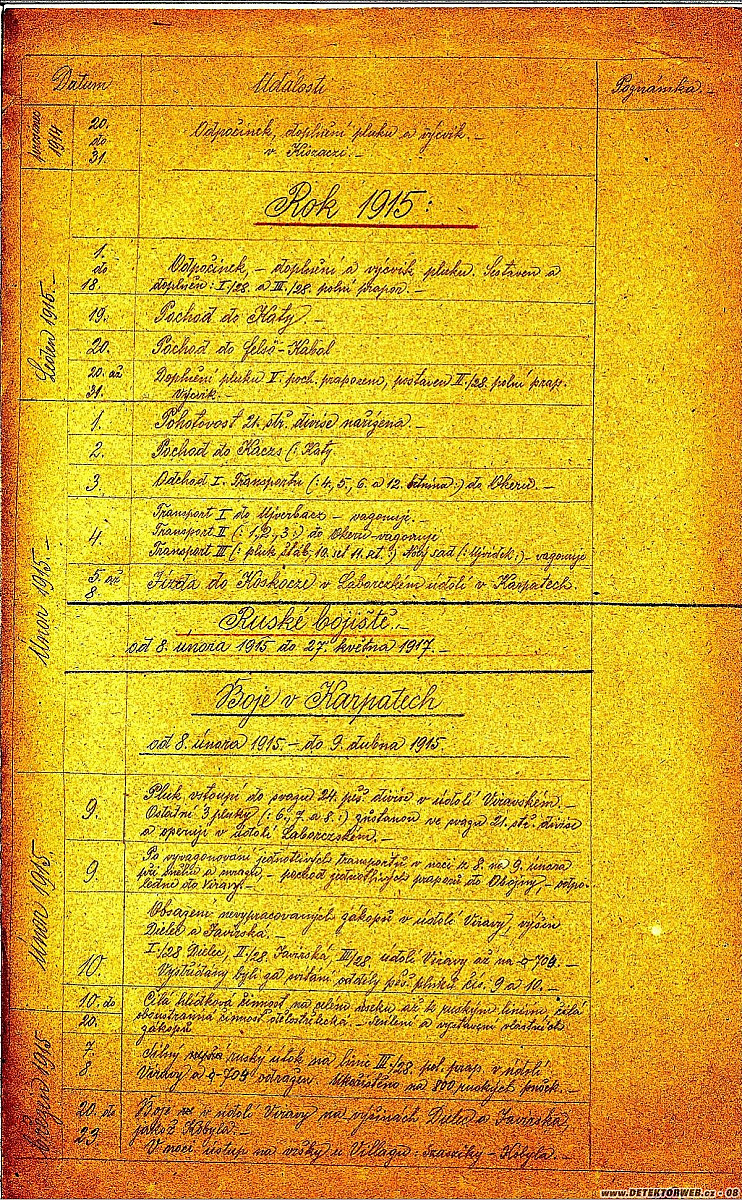 Datum Události Poznámka
prosinec 1914
20. do 31.
Odpočinek, doplnění pluku a výcvik. –
v Kiszaczi. –
Rok 1915:
Leden 1915. –
1. do 18.
Odpočinek, – doplnění a výcvik pluku. Sestaven a
doplněn: I./28. a III./28. polní prapor. –
19. Pochod do Káty. –
20. Pochod do felső-Kabol
20. až 31.
Doplnění pluku V. poch. praporem, postaven II./28. polní prap.
Výcvik. –
Únor 1915. –
1. Pohotovost 21. stř. divise nařízena. –
2. Pochod do Kácrs (: Káty
3. Odchod I. Transportu (: 4., 5., 6. a 12. :) do Okeru. –
4.
Transport I do Ujverbacz – vagonuje. –
Transport II (: 1., 2., 3. :) do Okeru – vagonuje
Transport III (: pluk. štáb, 10. set. 11. set. :) Nový sad (: Ujvidek :) – vagonuje
5. až 8. Jízda do Koskocze v Laborczkém údolí v Karpatech
Ruské bojiště. –
od 8. února 1915 do 27. května 1917. –
Boje v Karpatech
od 8. února 1915. – do 9. dubna 1915.
únor 1915.
9.
Pluk vstoupí do svazu 24. pěš. divise v údolí Viravském. –
Ostatní 3 pluky (: 6., 7. a 8. :) zůstanou ve svazu 21. stř. divise
a operují v údolí Laborczském. –
9
Po vyvagonování jednotlivých transportů v noci z 8. na 9. února
při sněhu a mrazu, – pochod jednotlivých praporů do Obojny, – odpo-
ledne do Viravy. –
10.
Obsazení nevypracovaných zákopů v údolí Viravy, výšin
Dielec a Javirská. –
I./28 Dielec, II./28. Javirská, III/28. údolí Viravy až na 709. –
Vystřídány byli za svítání oddíly pěš. pluků čís. 9 a 10. –
10. do 20.
Čilá hlídková činnost na celém úseku až k ruským liniím, čilá
oboustranná činnost dělostřelecká. – a vystavění vlastních
zákopů
březen 1915
7. 8
Silný ruský útok na linie III./28. pol. prap. v údolí
Viravy a 709 odražen. Ukořistěno na 800 ruských pušek. –
20. do 23
Boje v údolí Viravy na výšinách Dielec a Javirska,
jakož Kobyla. –
V noci ústup na vršky u Villagu: – Kobyla. –
www.DETEKTORWEB.cz - 06